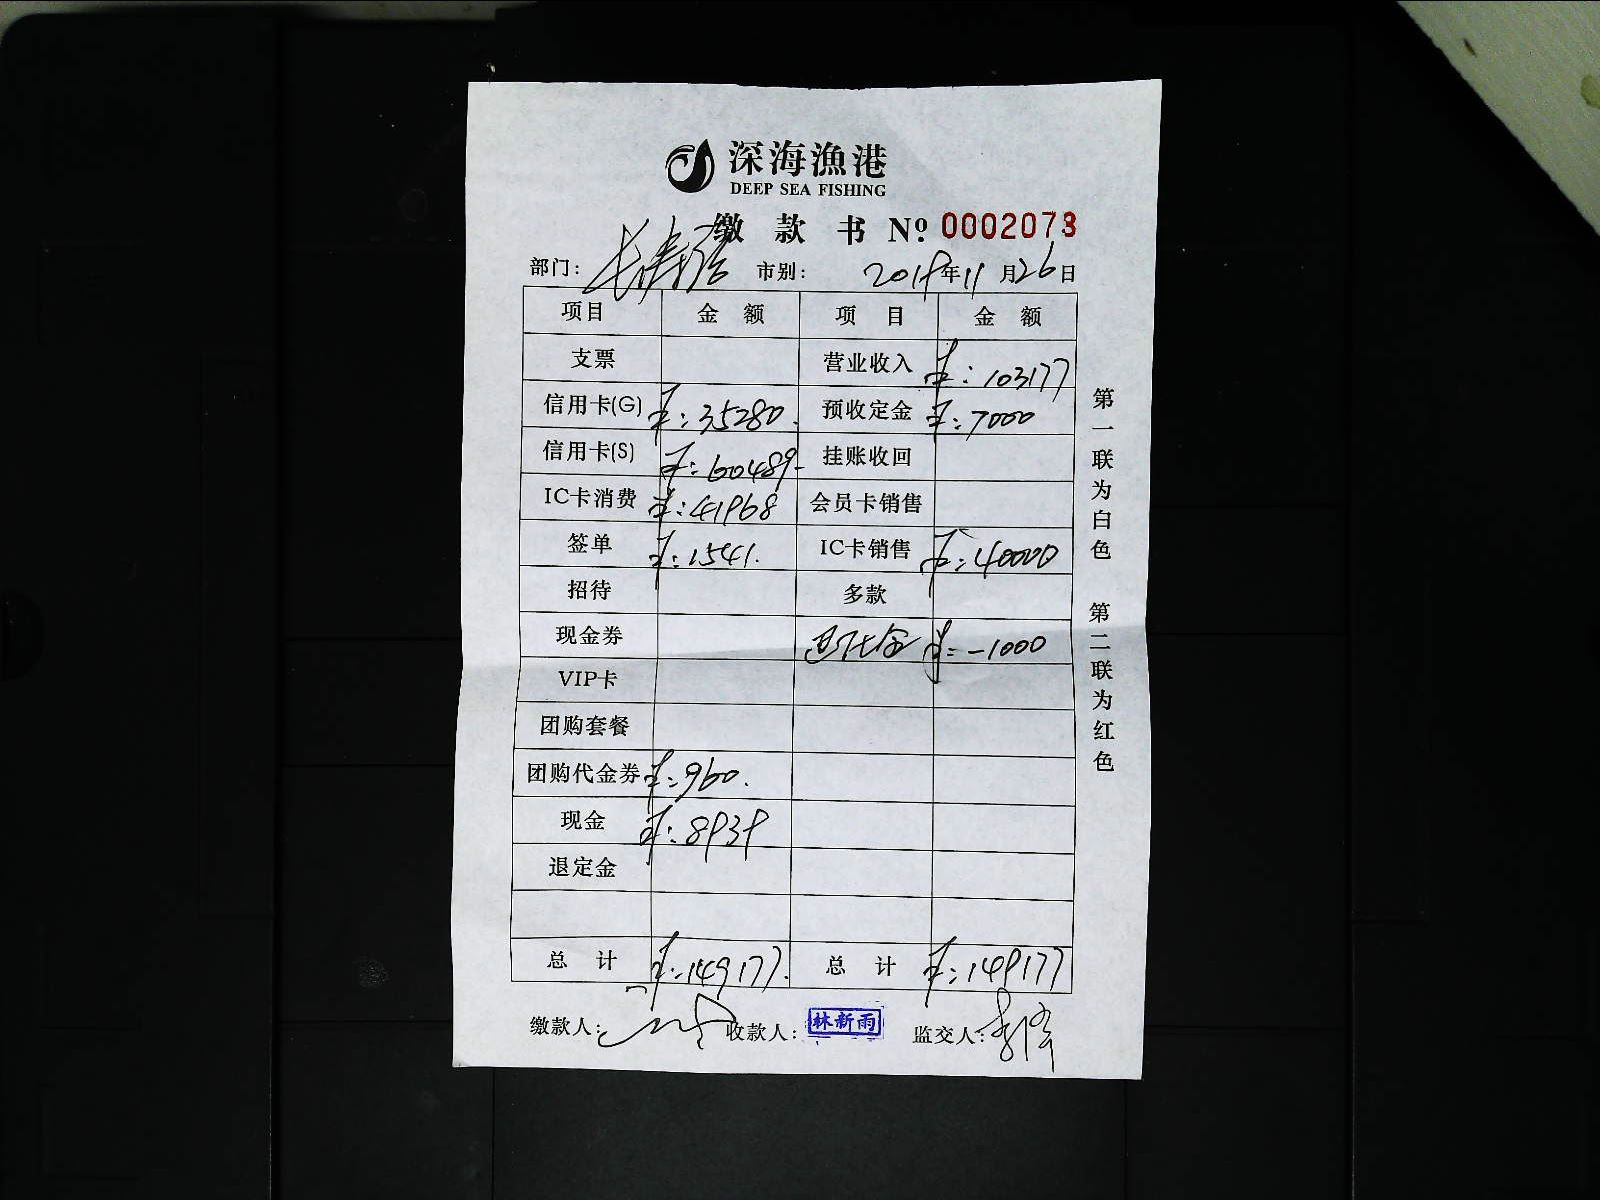 深海漁港
DEEP SEA FISHING
缴款书 Nº 0002073
部门： 市别： 2019年11月26日
项目 金额 项目 金额
支票 营业收入 ¥：103177
信用卡(G) ¥：35280. 预收定金 ¥：7000
信用卡(S) ¥：60489- 挂账收回
IC卡消费 ¥：41968 会员卡销售
签单 ¥：1541. IC卡销售 ¥：40000
招待 多款
现金券 退定金 ¥：-1000
VIP卡
团购套餐
团购代金券 ¥：960.
现金 ¥：8939
退定金
总计 ¥：149177. 总计 ¥：149177
缴款人： 收款人：林新雨 监交人：
第一联为白色 第二联为红色